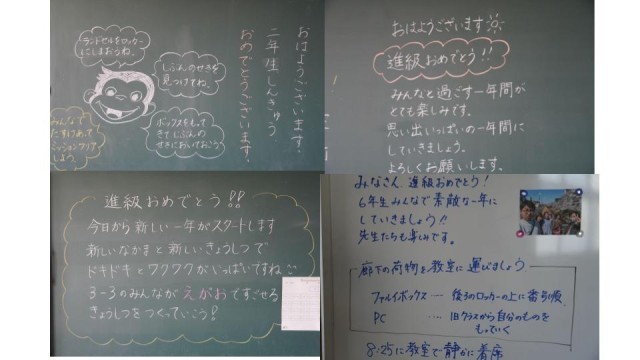 おはようございます。
二年生しんきゅう
おめでとうございます。
ランドセルをロッカー
にしまおうね。
じぶんのせきを
見つけてね。
ボックスをもって
きてじぶんの
せきにおいておこう
みんなで
たすけあって
ミッションクリア
しよう。
おはようございます
進級おめでとう!!
みんなと過ごす一年間が
とても楽しみです。
思い出いっぱいの一年間に
していきましょう。
よろしくお願いします。
進級おめでとう!!
今日から新しい一年がスタートします
新しいなかまと新しいきょうしつで
ドキドキとワクワクがいっぱいですね
3-3のみんながえがおですごせる
きょうしつをつくっていこう!
みなさん、進級おめでとう!
6年生みんなで素敵な一年に
していきましょう!!
先生たちも楽しみです。
廊下の荷物を教室に運びましょう
ファイルボックス…… 後ろのロッカーの上に番号順
PC …… 旧クラスから自分のものを
もっていく
8:25に教室で静かに着席